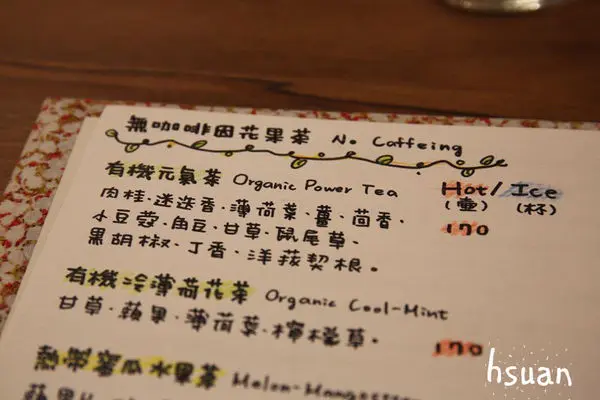 無咖啡因花果茶 No Caffeing
有機元氣茶 Organic Power Tea Hot/Ice
(壺) (杯)
肉桂·迷迭香·薄荷葉·薑·茴香· 170
小豆蔻·角豆·甘草·鼠尾草·
黑胡椒·丁香·洋菝契根。
有機冷薄荷花茶 Organic Cool-Mint
甘草·蘋果·薄荷葉·檸檬草。 170
熱帶蜜瓜水果茶
蘋果
hsuan